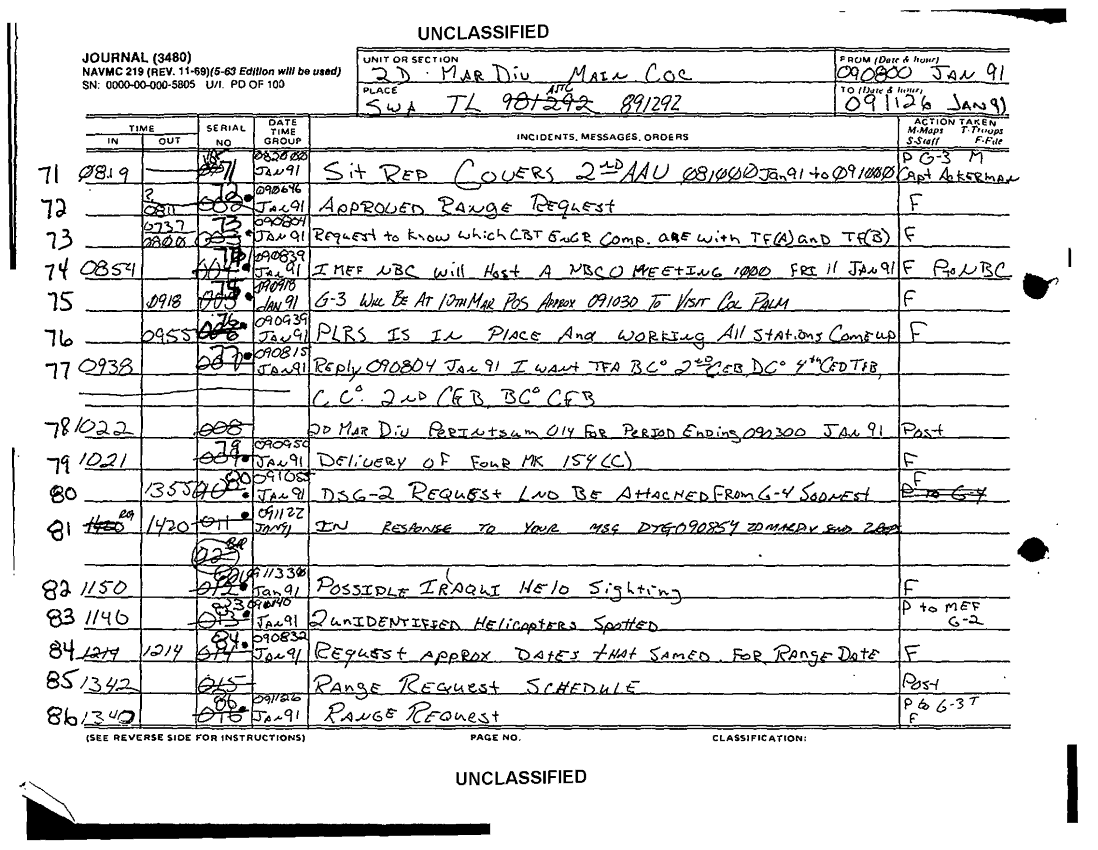 UNCLASSIFIED
JOURNAL (3480)
NAVMC 219 (REV. 11-69)(5-63 Edition will be used)
SN: 0000-00-000-5805 U/I. PD OF 100
UNIT OR SECTION
2D MAR DIV MAIN COC
FROM (Date & hour)
090800 JAN 91
PLACE
SWA TL 891292
TO (Date & hour)
091126 JAN 91
TIME
IN OUT
SERIAL NO
DATE TIME GROUP
INCIDENTS, MESSAGES, ORDERS
ACTION TAKEN
M-Maps T-Troops
S-Staff F-File
71 0819 71 JAN 91 Sit Rep Covers 2nd AAU 081000 Jan 91 to 091000 P G-3 M Capt Ackerman
72 0811 72 090646 JAN 91 APPROVED RANGE REQUEST F
73 0737 0800 73 090804 JAN 91 Request to know which CBT ENGR Comp. ARE with TF(A) and TF(B) F
74 0854 74 090839 JAN 91 I MEF NBC will Host A NBCO MEETING 1000 FRI 11 JAN 91 F P to NBC
75 0918 75 090918 JAN 91 G-3 WILL BE AT 10TH MAR POS APPROX 091030 TO VISIT COL PALM F
76 0955 76 090939 JAN 91 PLRS IS IN PLACE And WORKING All STATIONS COME UP F
77 0938 77 090815 JAN 91 Reply 090804 JAN 91 I WANT TFA B Co 2nd CEB, D Co 4th TFB,
C Co. 2ND CEB, B Co CEB
78 1022 008 2D MAR DIV PERINTSUM 014 FOR PERIOD Ending 090300 JAN 91 Post
79 1021 79 090950 JAN 91 DELIVERY OF FOUR MK 154 (C) F
80 1355 80 JAN 91 DSG-2 REQUEST LNO BE ATTACHED FROM G-4 SOONEST F P to G-4
81 1420 011 091122 JAN 91 IN RESPONSE TO YOUR MSG DTG 090854 2D MARDIV SEND
82 1150 JAN 91 POSSIBLE IRAQUI HELO Sighting F
83 1146 83 JAN 91 2 unIDENTIFIED HELICOPTERS SPOTTED P to MEF G-2
84 1214 1214 84 090832 JAN 91 REQUEST APPROX DATES THAT FOR RANGE DATE F
85 1342 015 RANGE REQUEST SCHEDULE Post
86 1340 86 091126 JAN 91 RANGE REQUEST P to G-3 T F
(SEE REVERSE SIDE FOR INSTRUCTIONS) PAGE NO. CLASSIFICATION:
UNCLASSIFIED